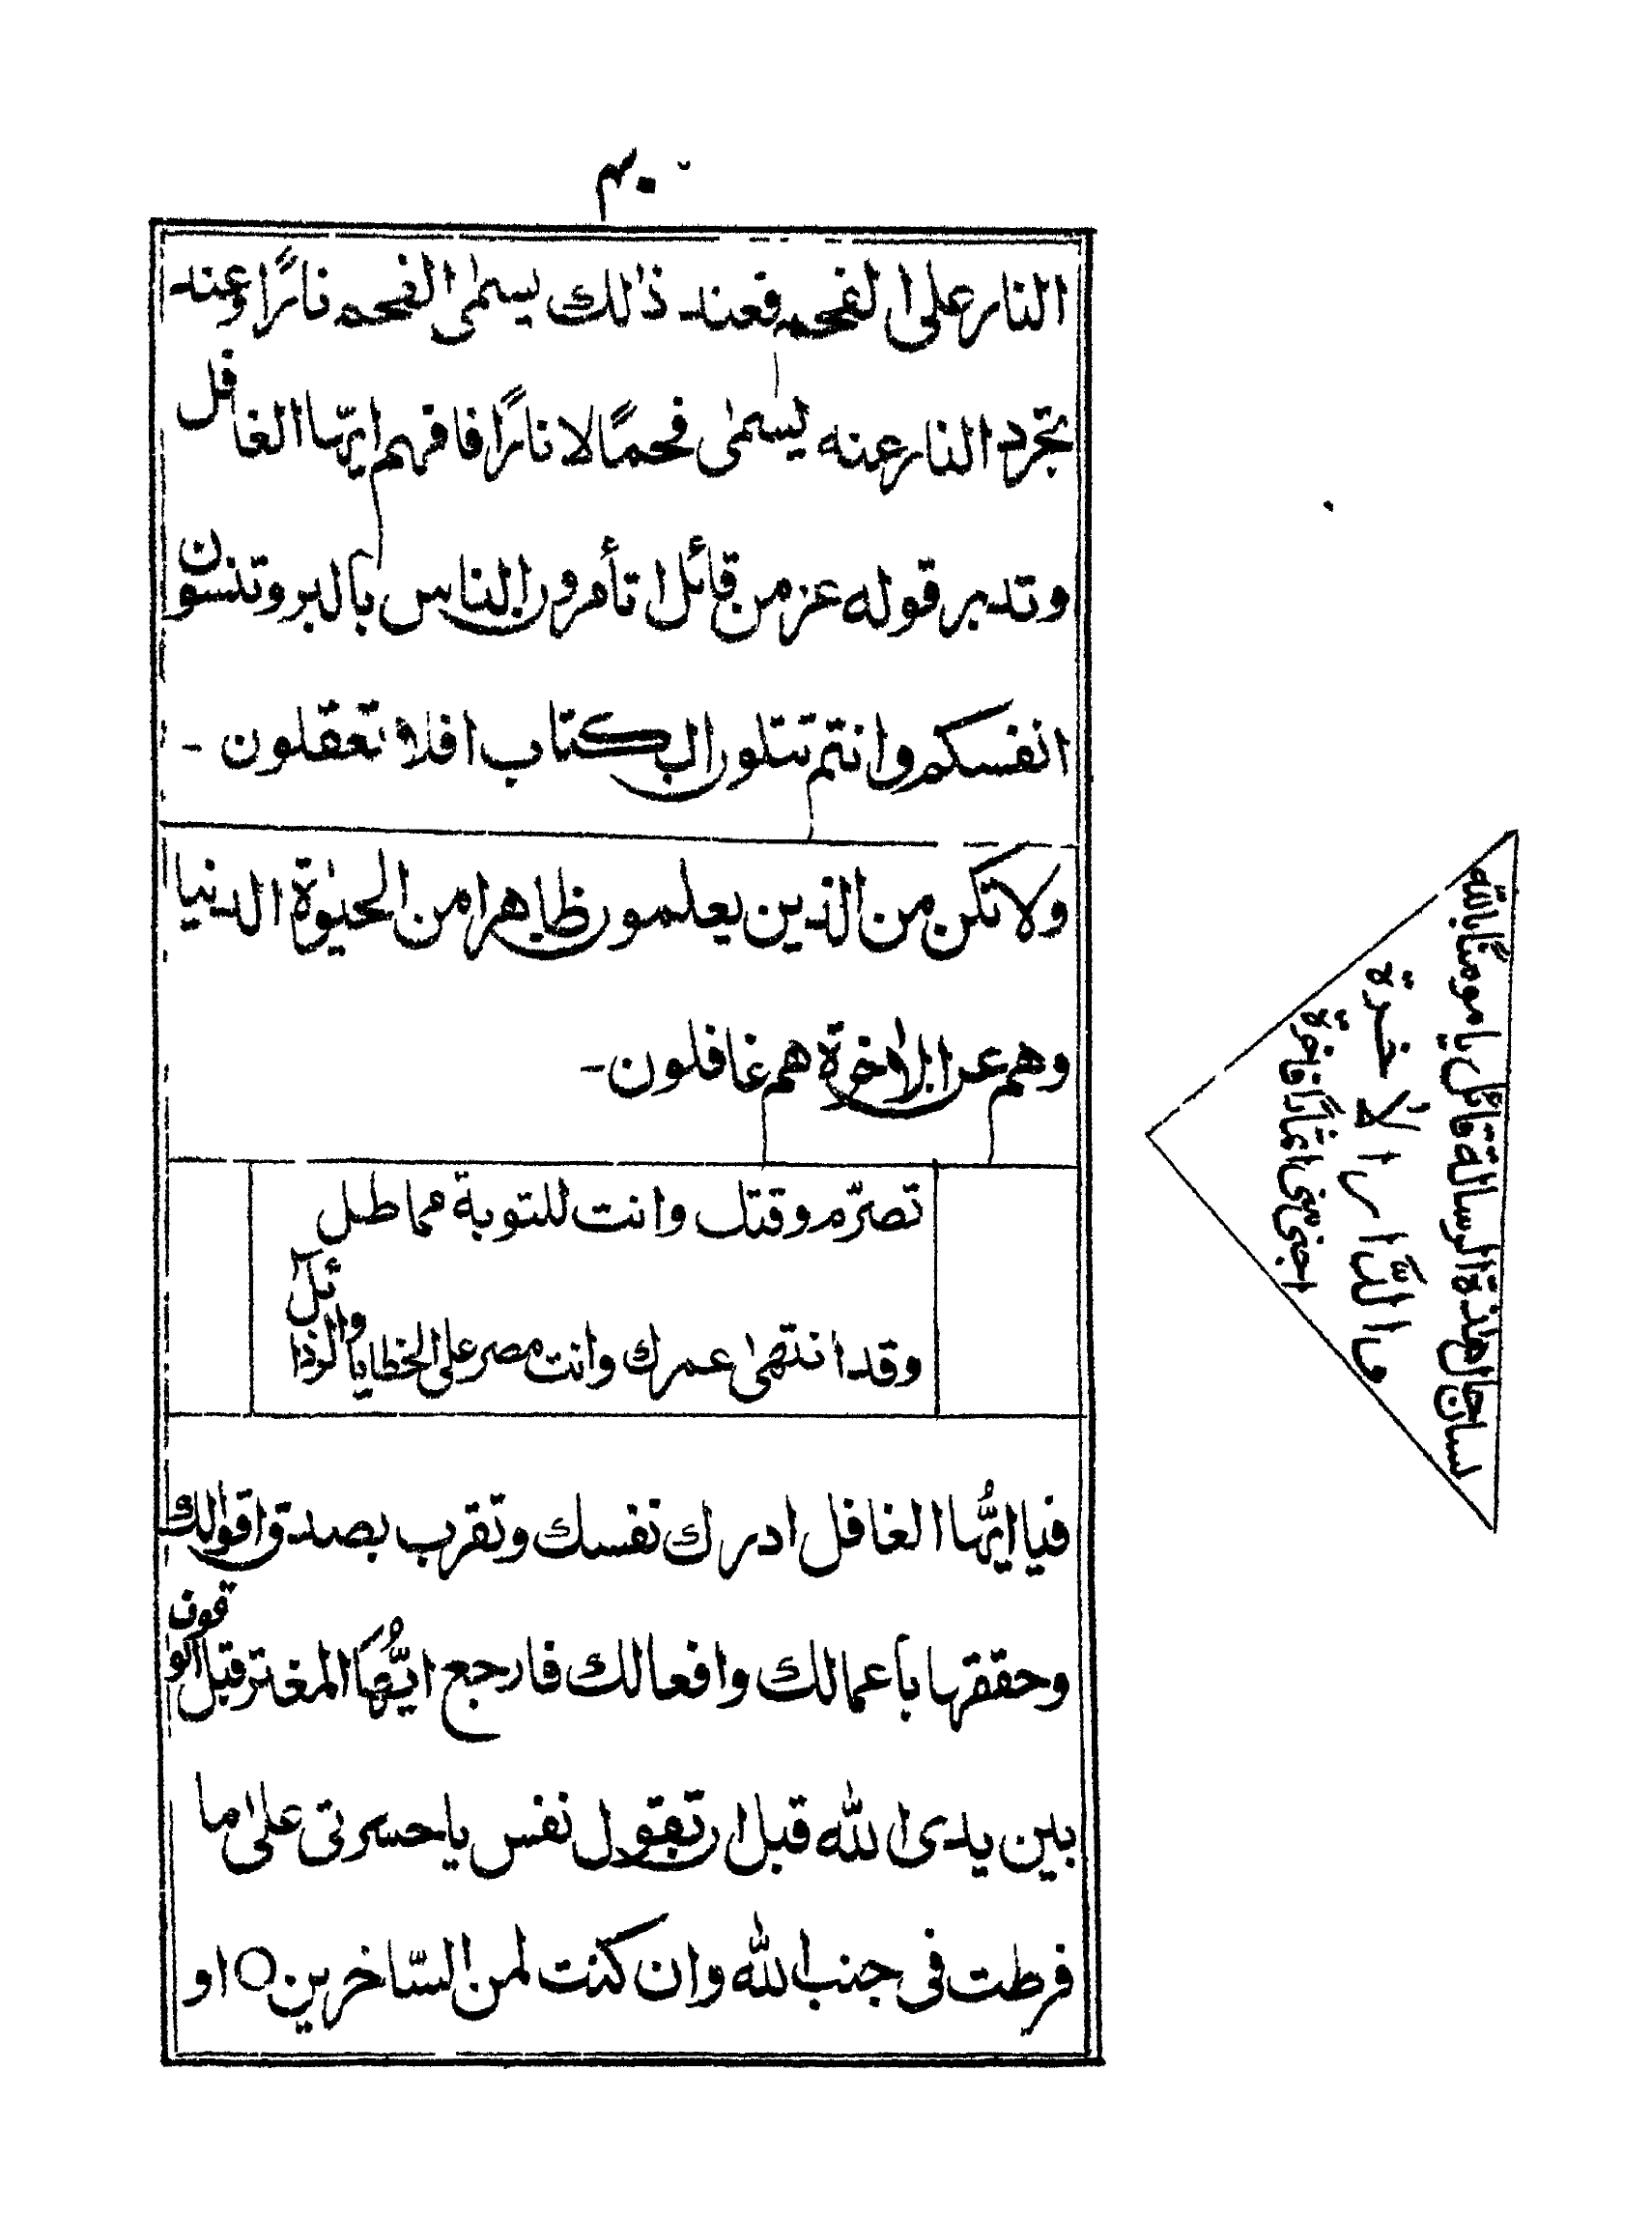 النار على الفحم فعند ذٰلك يسمٰى الفحم نارًا وعند
تجرد النار عنه يسمٰى فحمًا لا نارًا فافهم ايّها الغافل
وتدبر قوله عز من قائل اتأمرون الناس بالبر وتنسون
انفسكم وانتم تتلون الكتاب افلا تعقلون -
ولا تكن من الذين يعلمون ظاهرا من الحيٰوة الدنيا
وهم عن الاٰخرة هم غافلون -
تصرّم وقتك وانت للتوبة مماطل
وقد انتهىٰ عمرك وانت مصر على الخطايا والرذائل
فيا ايُّها الغافل ادرك نفسك وتقرب بصدق اقوالك
وحققها باعمالك وافعالك فارجع ايُّها المغتر قبل الوقون
بين يدى الله قبل ان تقول نفس ياحسرتى علىٰ ما
فرطت فى جنب الله وان كنت لمن السّاخرين ○ او
لسان حال هٰذة الرسالة قائل يا مومنًا بالله
والدَّار الاٰخرة
اجنى ثمّى اثمارًا فاخرة